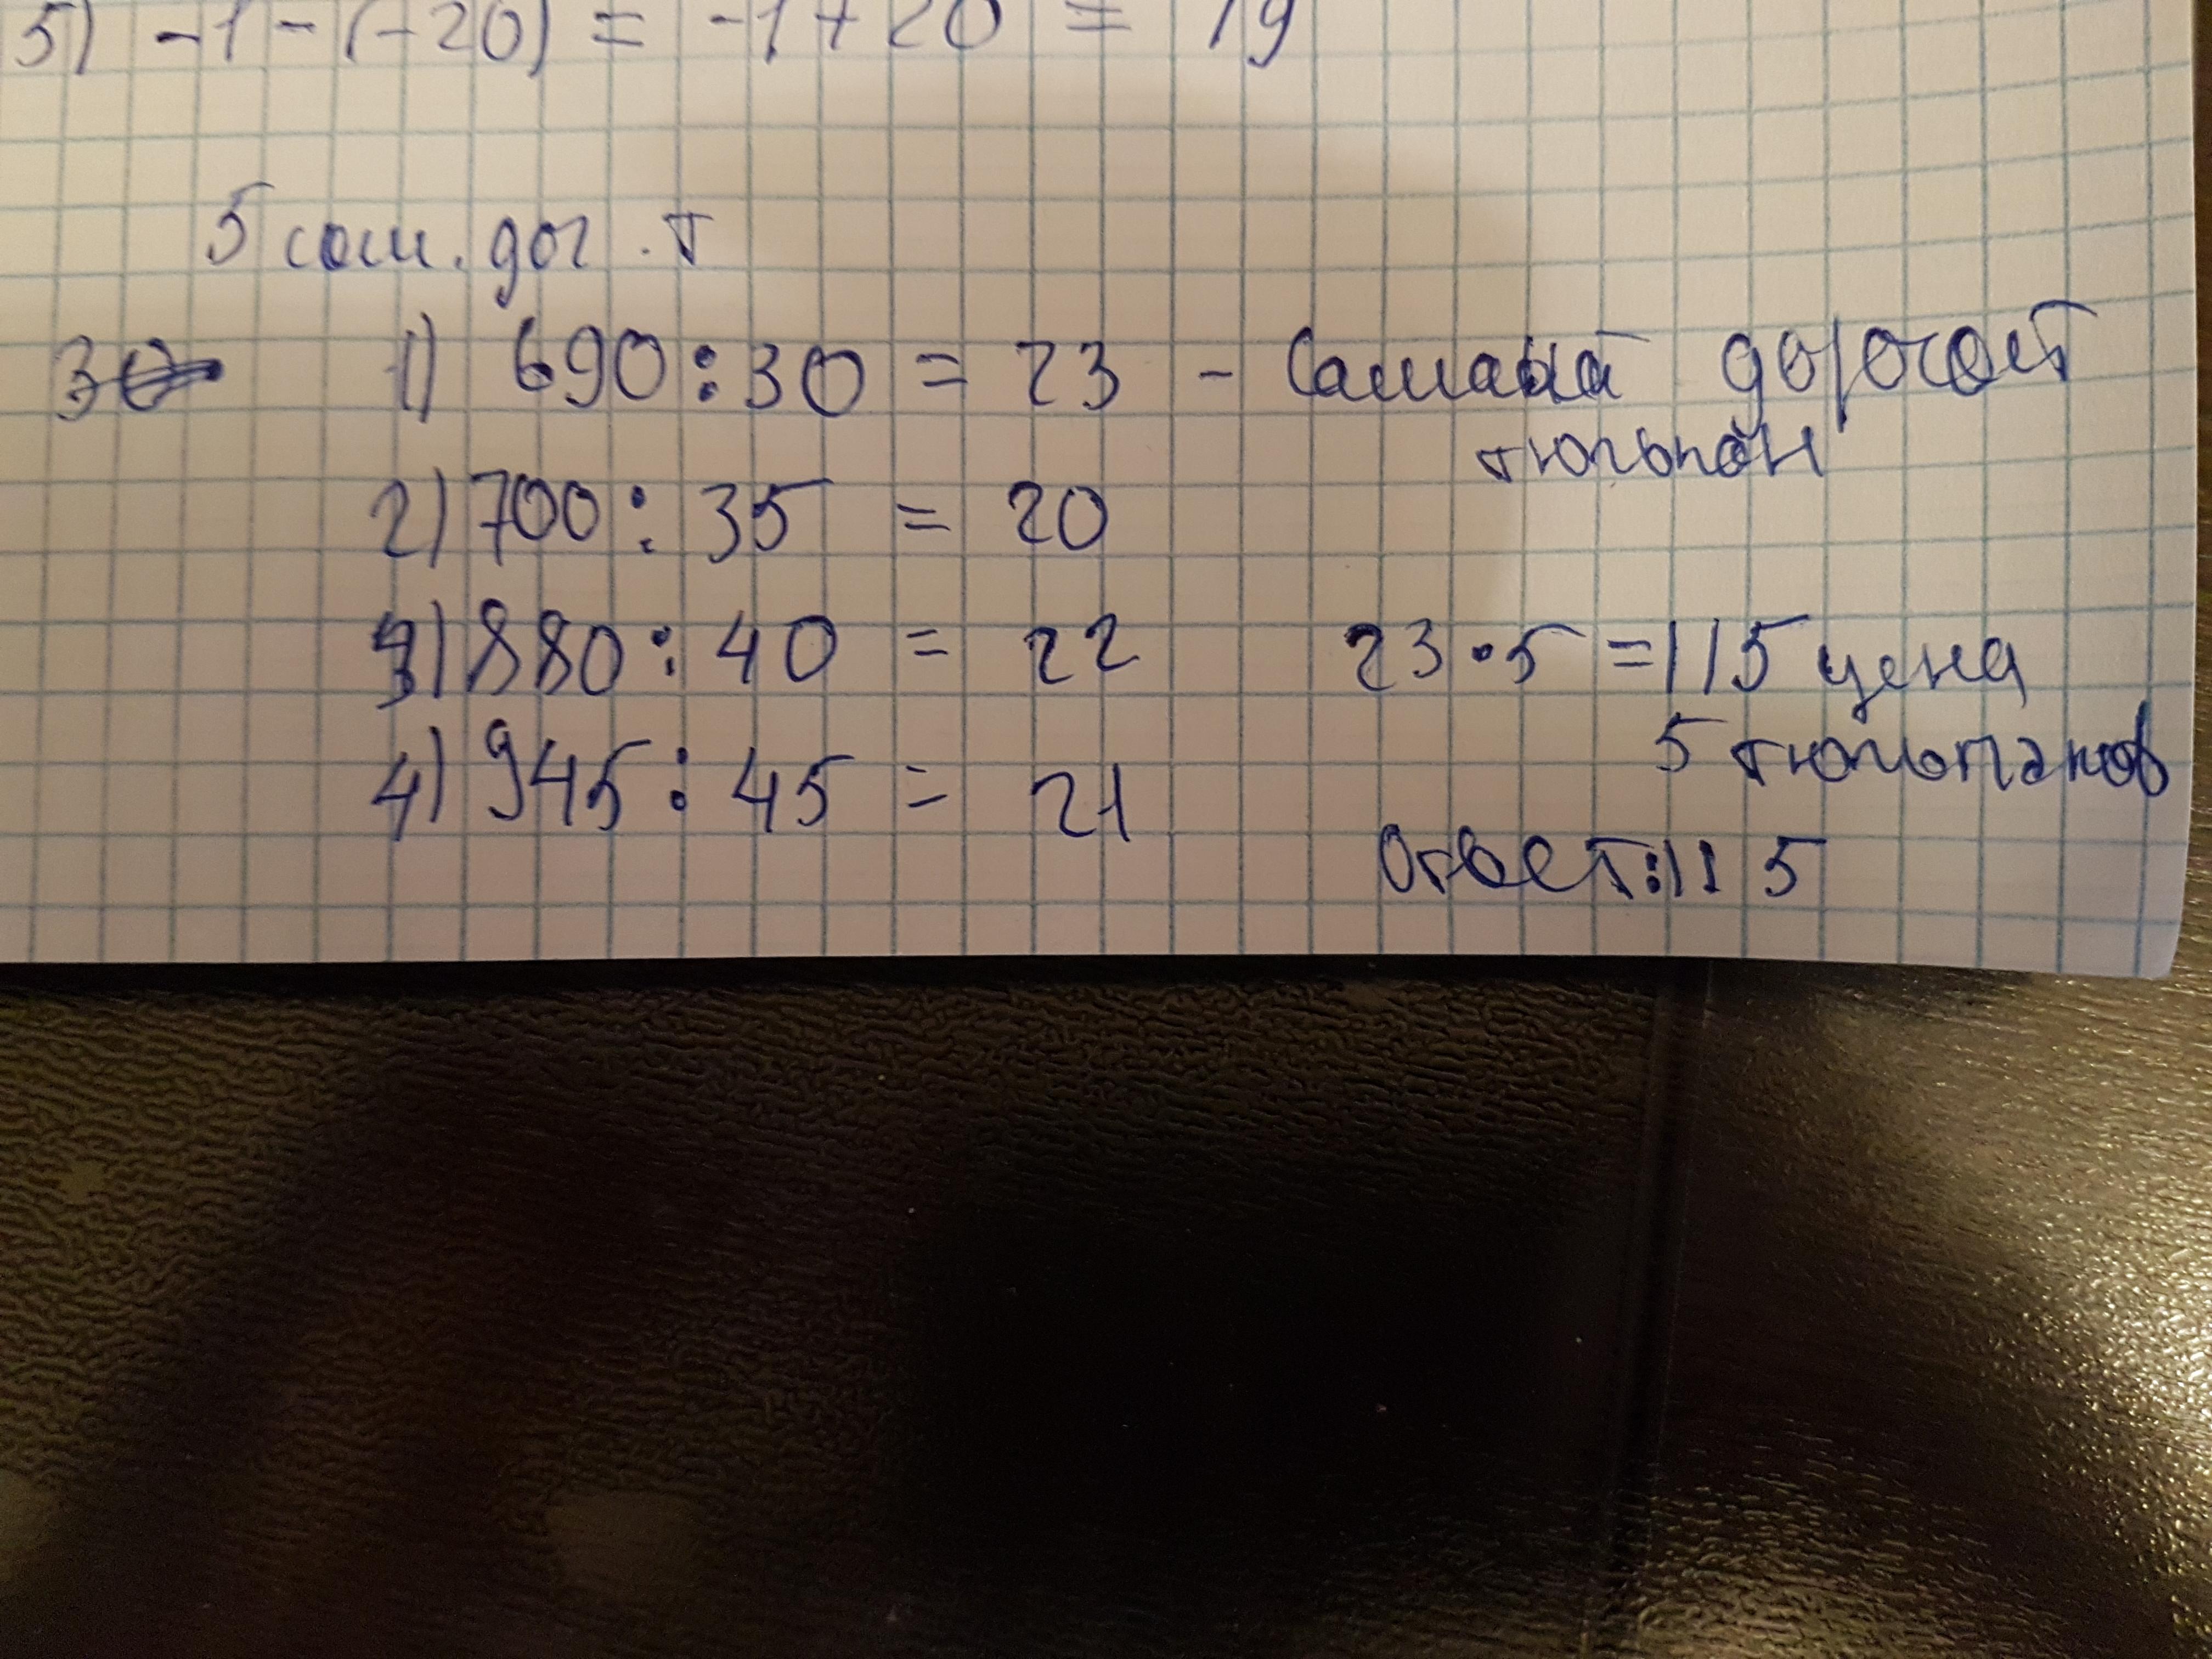 5) -1 - (-20) = -1 + 20 = 19
5 сам. дог. т
30 1) 690 : 30 = 23 - Самый дорогой
тюльпан
2) 700 : 35 = 20
3) 880 : 40 = 22 23 • 5 = 115 цена
5 тюльпанов
4) 945 : 45 = 21
Ответ: 115